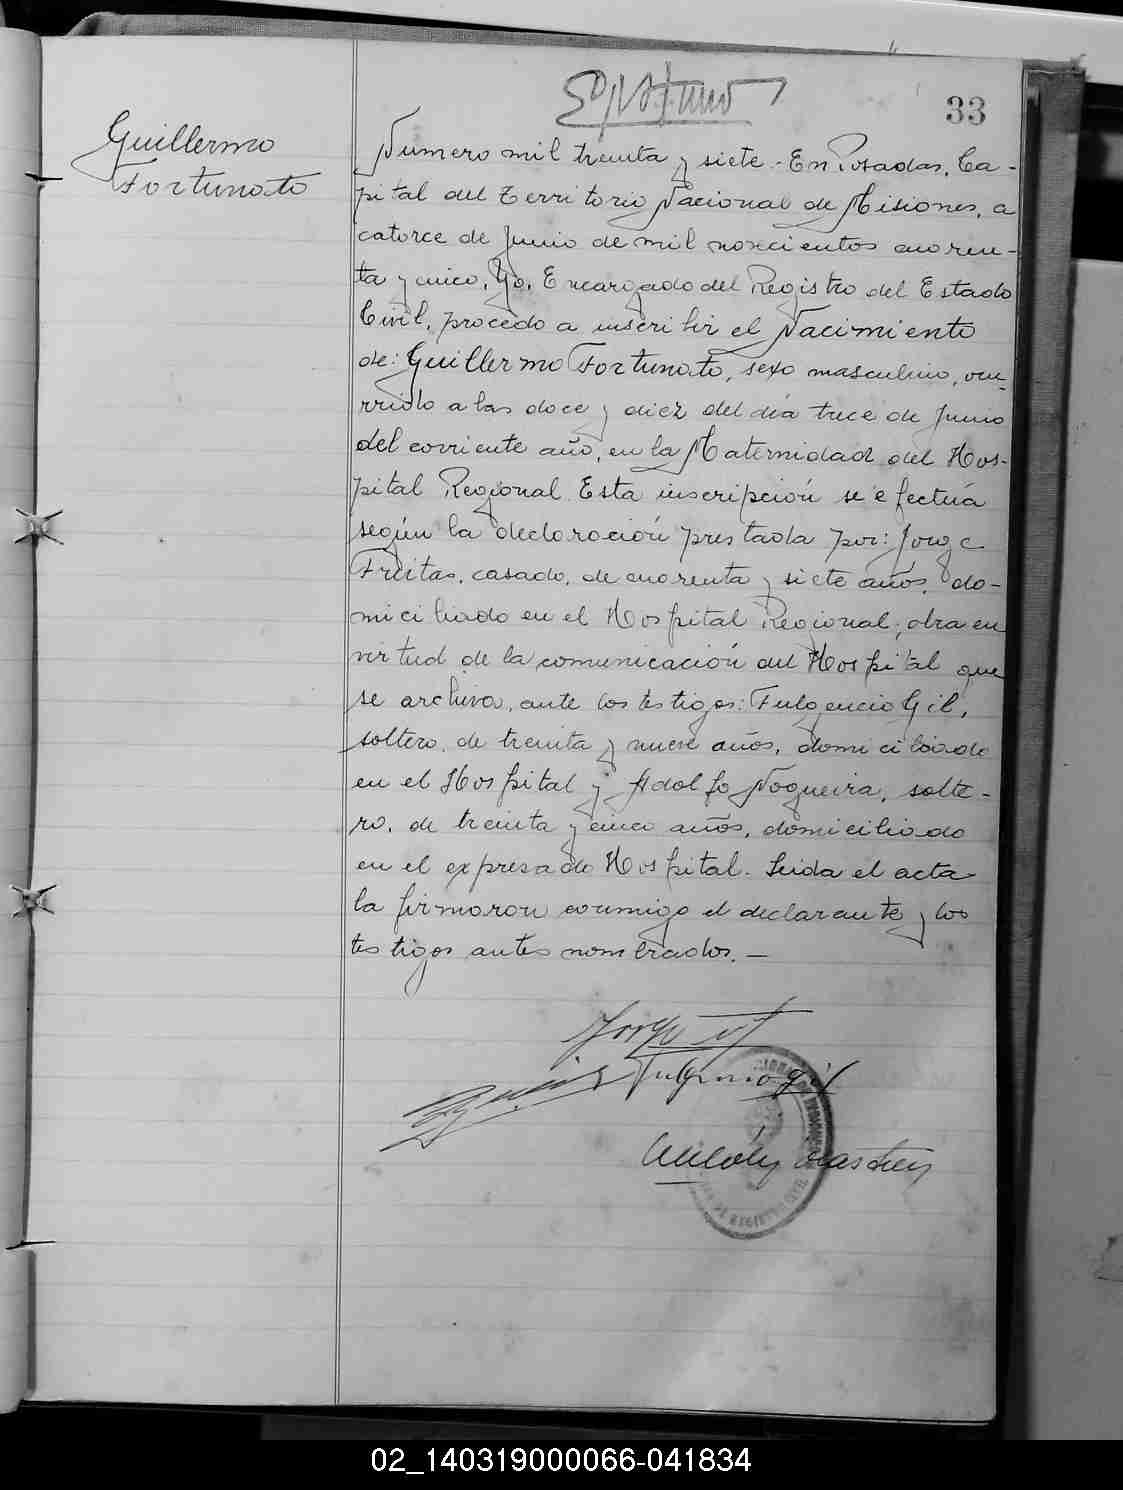 33
Guillermo
Fortunato
Numero mil treinta y siete.- En Posadas, Ca-
pital del Territorio Nacional de Misiones, a
catorce de Junio de mil novecientos cuaren-
ta y cinco, Yo, Encargado del Registro del Estado
Civil, procedo a inscribir el Nacimiento
de: Guillermo Fortunato, sexo masculino, ocu-
rrido a las doce y diez del día trece de Junio
del corriente año, en la Maternidad del Hos-
pital Regional. Esta inscripción se efectúa
según la declaración prestada por: Jorge
Freitas, casado, de cuarenta y siete años, do-
miciliado en el Hospital Regional; obra en
virtud de la comunicación del Hospital que
se archiva, ante los testigos: Fulgencio Gil,
soltero, de treinta y nueve años, domiciliado
en el Hospital y Adolfo Nogueira, solte-
ro, de treinta y cinco años, domiciliado
en el expresado Hospital. Leida el acta
la firmaron conmigo el declarante y los
testigos antes nombrados.—
Jorge
Fulgencio Gil
02_140319000066-041834